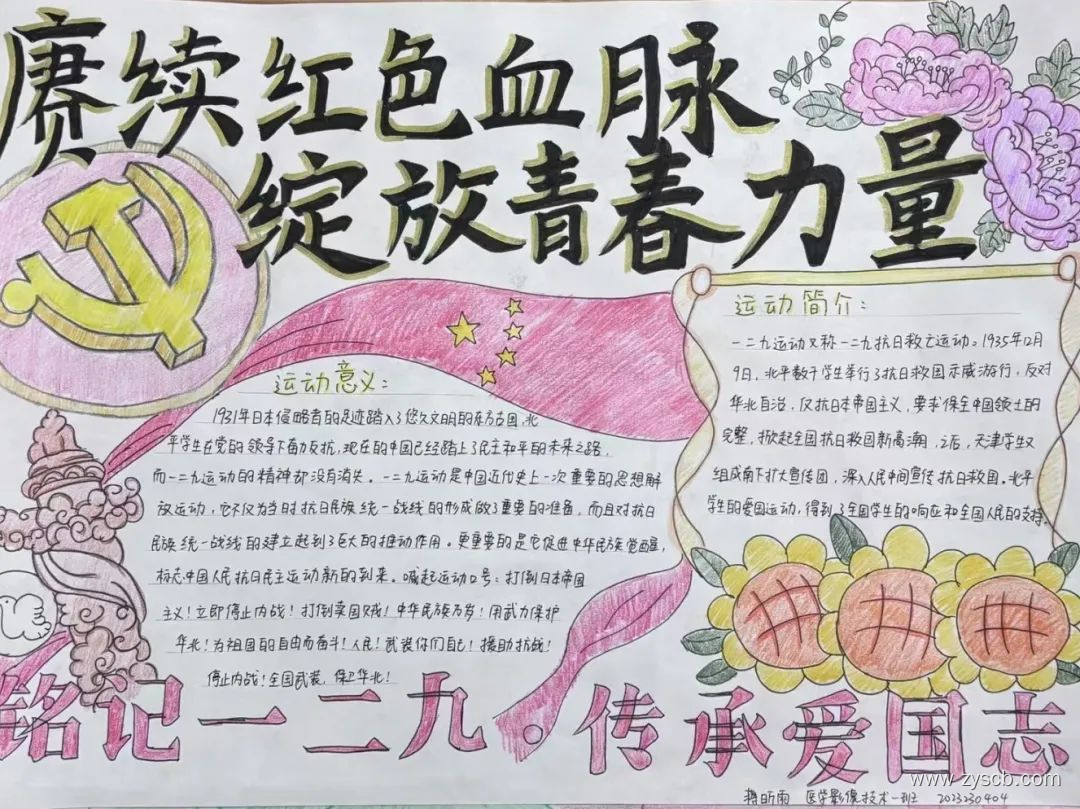 赓续红色血脉
绽放青春力量
运动意义:
1931年日本侵略者的足迹踏入了悠久文明的东方古国,北
平学生在党的领导下奋力反抗,现在的中国已经踏上了民主和平的未来之路,
而一二九运动的精神却没有消失。一二九运动是中国近代史上一次重要的思想解
放运动,它不仅为当时抗日民族统一战线的形成做了重要的准备,而且对抗日
民族统一战线的建立起到了巨大的推动作用。更重要的是它促进中华民族觉醒,
标志中国人民抗日民主运动新的到来。喊起运动口号:打倒日本帝国
主义!立即停止内战!打倒卖国贼!中华民族万岁!用武力保护
华北!为祖国的自由而奋斗!人民!武装你们自己!援助抗战!
停止内战!全国武装,保卫华北!
运动简介:
一二九运动又称一二九抗日救亡运动。1935年12月
9日,北平数千学生举行了抗日救国示威游行,反对
华北自治,反抗日本帝国主义,要求保全中国领土的
完整,掀起全国抗日救国新高潮,之后,天津学生又
组成南下扩大宣传团,深入人民中间宣传抗日救国。北平
学生的爱国运动,得到了全国学生的响应和全国人民的支持。
铭记一二九。传承爱国志
昕雨 医学影像技术一班 2023230404
www.zyscb.com